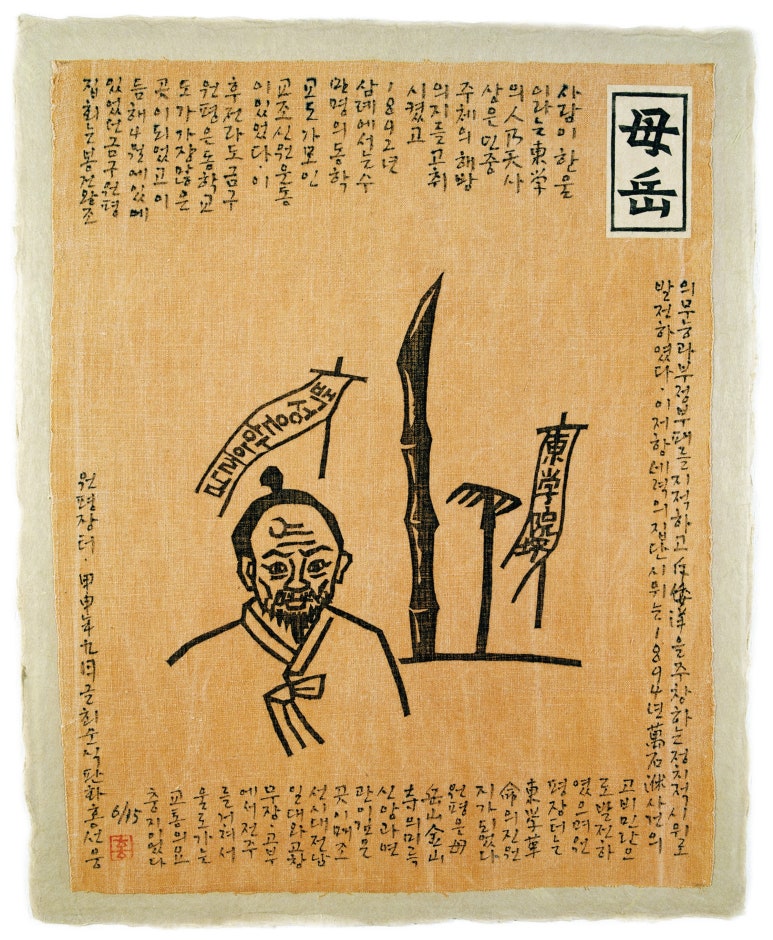 母岳
사람이 한울
이라는 東学
의 人乃天 사
상은 민중
주체의 해방
의지를 고취
시켰고
1892년
삼례에서는 수
만명의 동학
교도가 모인
교조신원운동
이 있었다. 이
후 전라도 금구
원평은 동학교
도가 가장 많은
곳이 되었고 이
듬해 4월에
있었던 금구원평
집회는 봉건왕조
의 무능과 부정부패를 지적하고 斥倭洋을 주창하는 정치적 시위로
발전하였다. 이 저항세력의 집단시위는 1894년 萬石洑사건의
고비민란으
로 발전하
였으며 원
평장터는
東学革
命의 진원
지가 되었다
원평은 母
岳山 金山
寺의 미륵
신앙과 연
관이 깊은
곳이며 조
선시대 전남
일대와 고창
무장·고부
에서 전주
를 거쳐서
울로 가는
교통의 요
충지이었다
원평장터·甲申年九月 글 최순식 판화 홍선웅
6/15
東学院坪